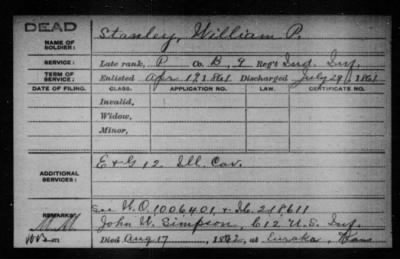 DEAD
NAME OF SOLDIER: Stanley, William P.
SERVICE: Late rank, P Co. B, 9 Reg't Ind. Inf.
TERM OF SERVICE: Enlisted Apr 18 1861 Discharged July 29, 1861
DATE OF FILING. CLASS. APPLICATION NO. LAW. CERTIFICATE NO.
Invalid,
Widow,
Minor,
ADDITIONAL SERVICES: E & G 12 Ill. Cav.
See W.O. 1006401, &
REMARKS: John W. Simpson, C 12 U.S. Inf.
Died Aug 17, at Eureka, Kans